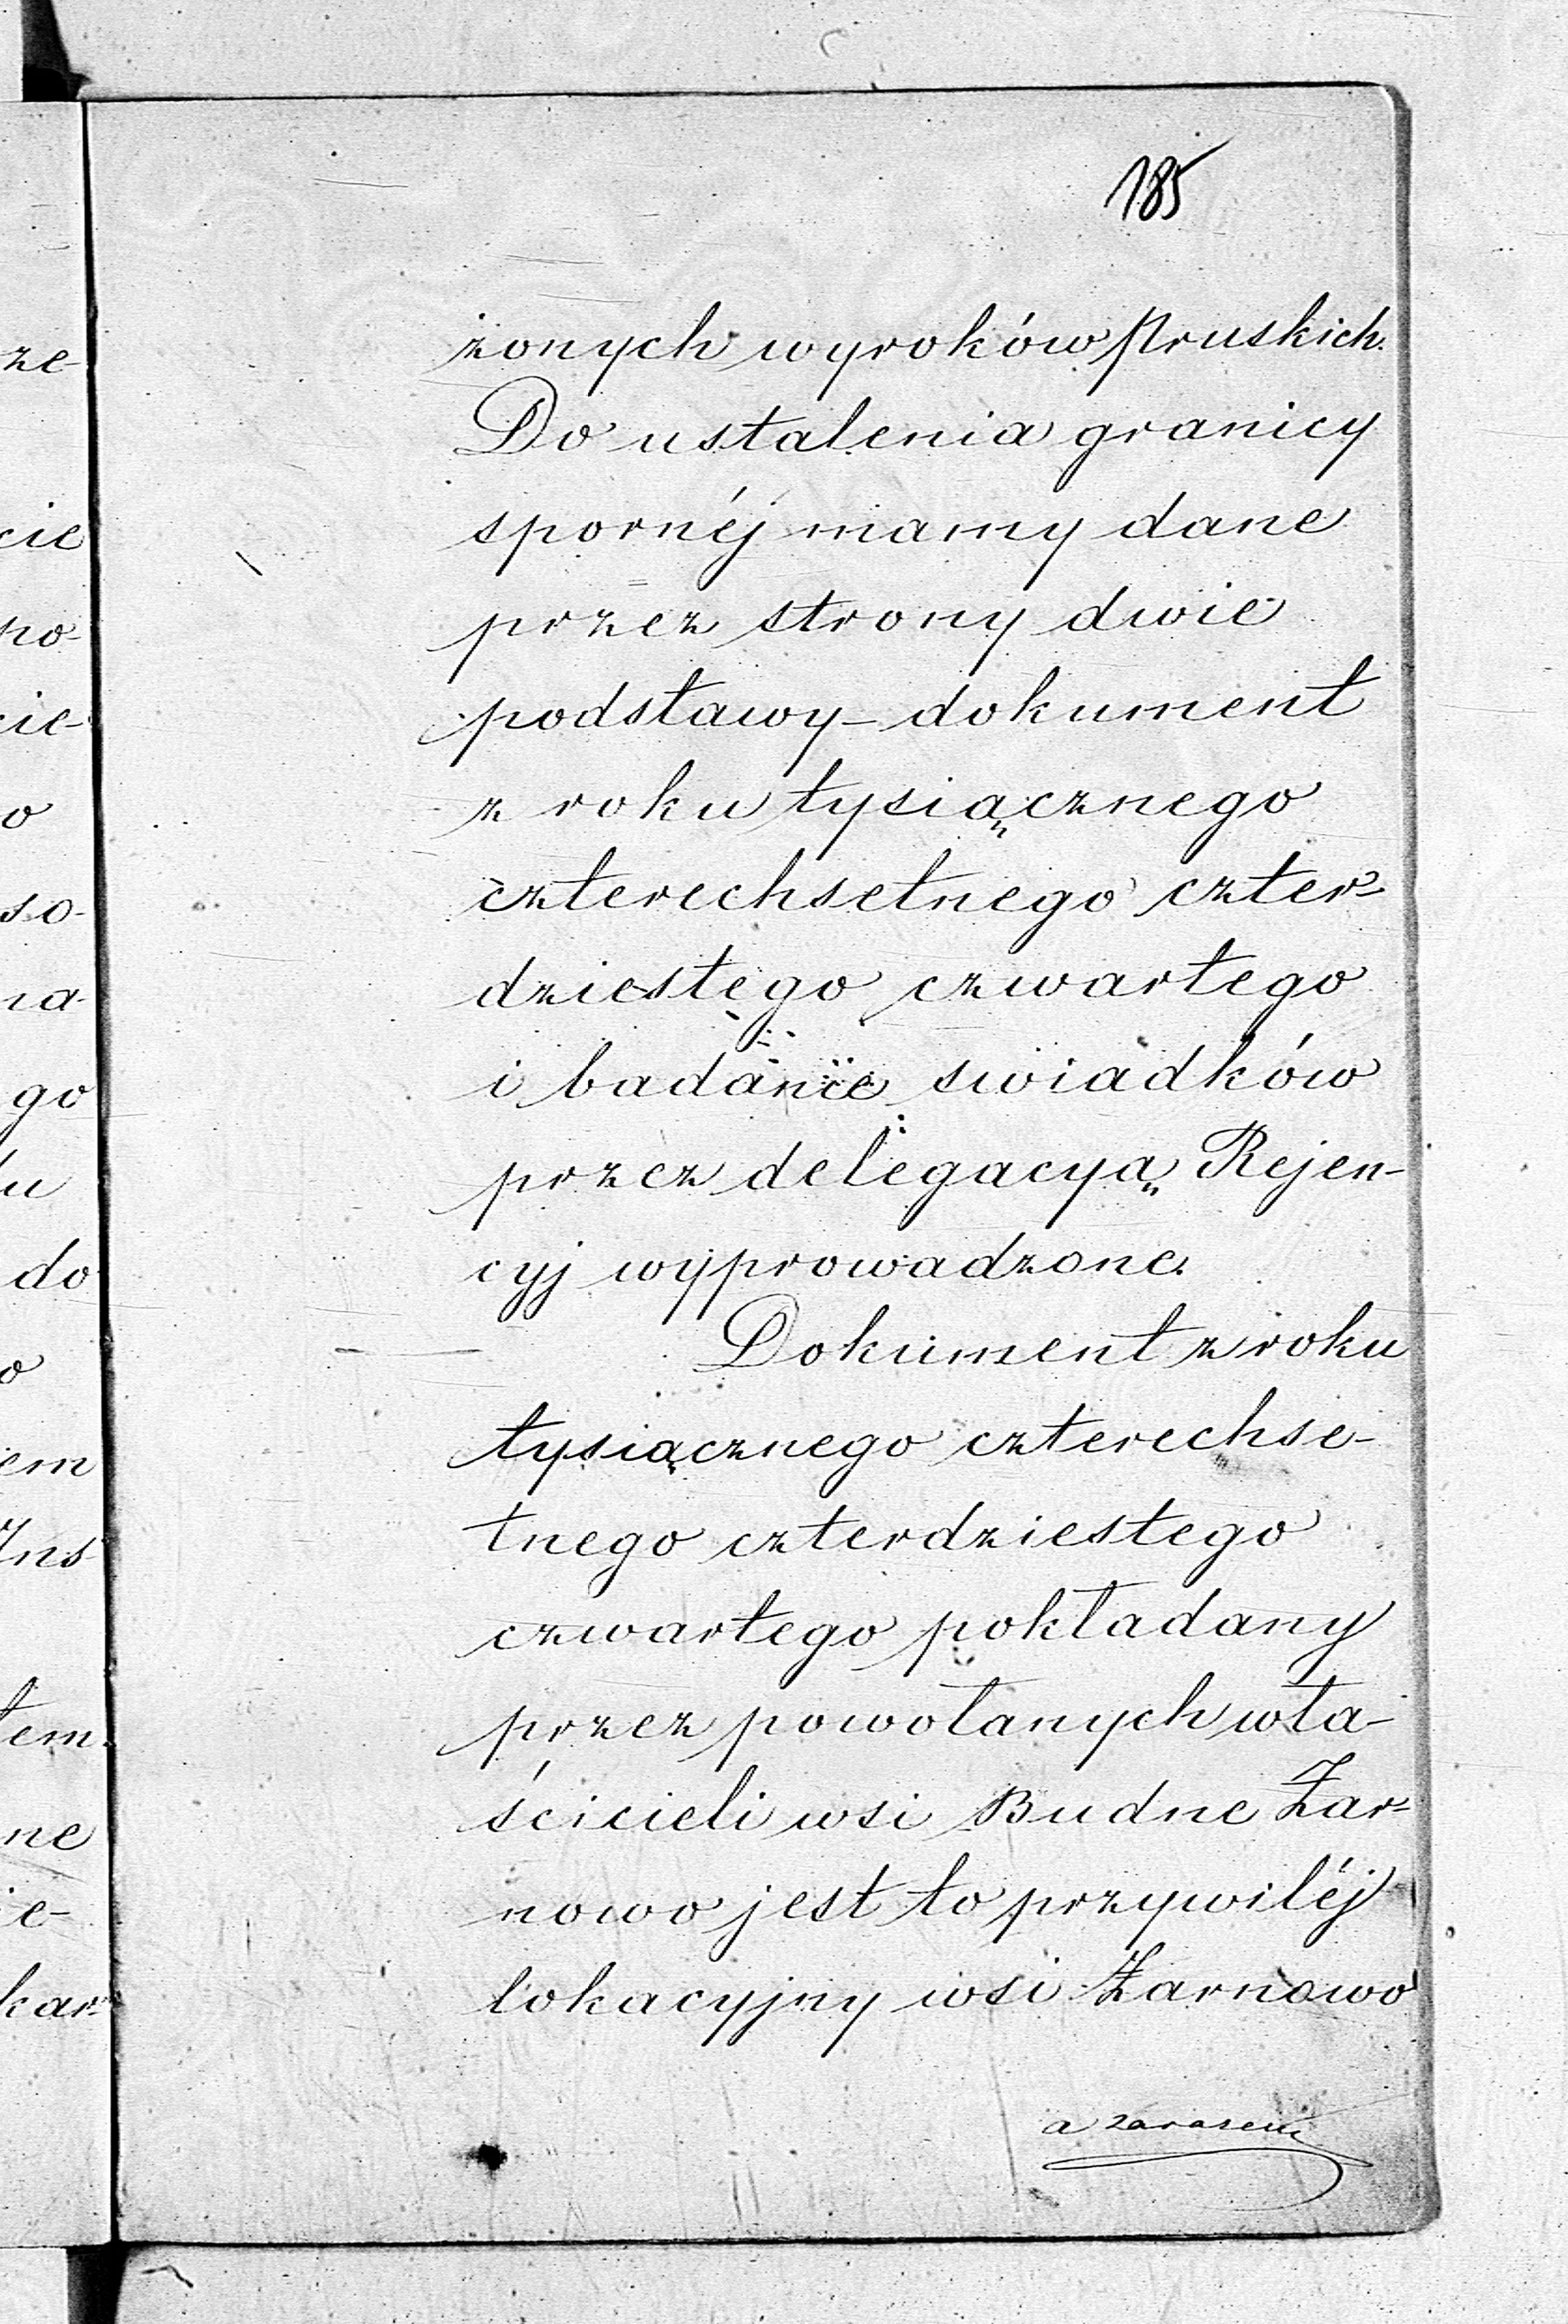 185
żonych wyroków Pruskich.
Do ustalenia granicy
spornéj mamy dane
przez strony dwie
podstawy - dokument
z roku tysiącznego
czterechsetnego czter-
dziestego czwartego
i badanie swiadków
przez delegacyą Rejen-
cyj wyprowadzone.
Dokument z roku
tysiącznego czterechse-
tnego czterdziestego
czwartego pokładany
przez powołanych wła-
ścicieli wsi Budne Żar-
nowo jest to przywiléj
lokacyjny wsi Żarnowo
a zarazem
ze-
cie
po-
cie-
o
so-
na-
go
du
do
o
iem
Ins
tem
ne
ie-
kar-